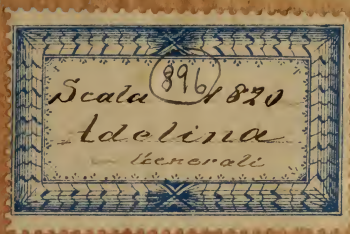 896
Scala 1820
Adelina
Generali